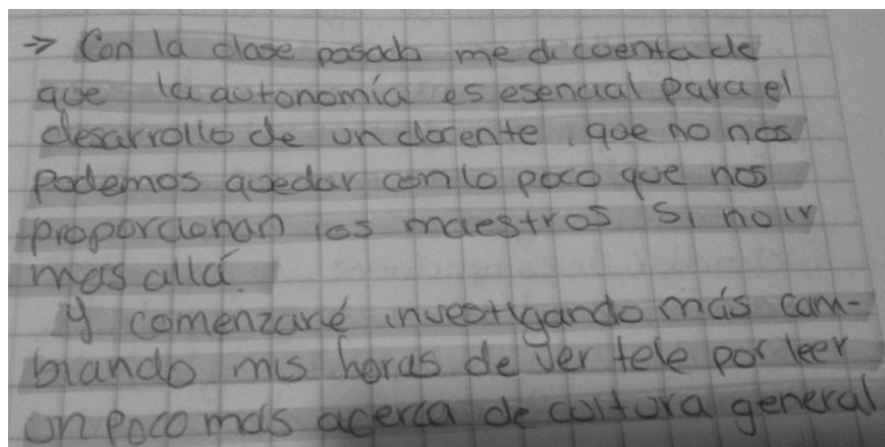 → Con la clase pasada me di cuenta de
que la autonomía es esencial para el
desarrollo de un docente, que no nos
podemos quedar con lo poco que nos
proporcionan los maestros si no ir
mas allá.
y comenzaré investigando más cam-
biando mis horas de ver tele por leer
un poco más acerca de cultura general